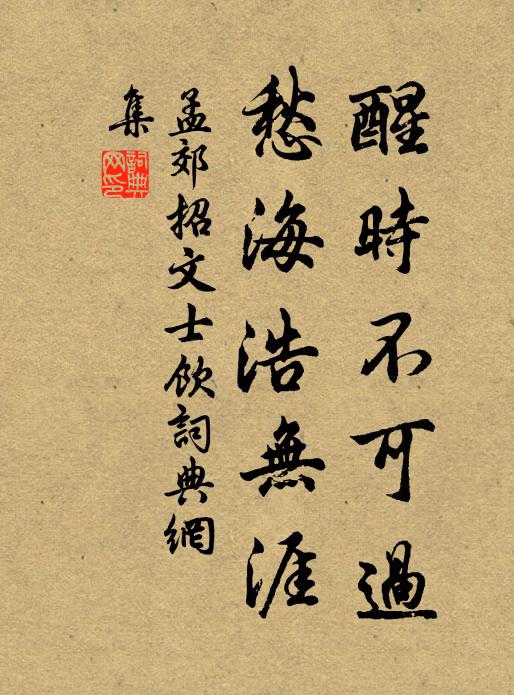 醒時不可過
愁海浩無涯
孟郊招文士飲詞典網
集
詞典網印